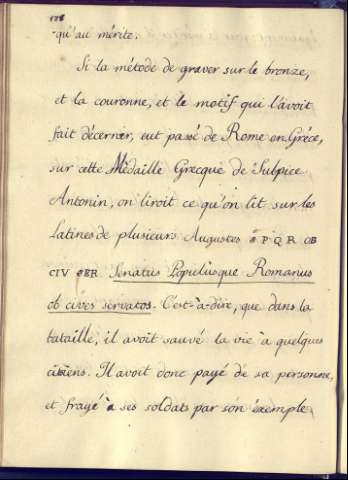 178
-qu'au mérite.
Si la métode de graver sur le bronze,
et la couronne, et le motif qui l'avoit
fait décerner, eut passé de Rome en Gréce,
sur cette Médaille Grecque de Sulpice
Antonin, on liroit ce qu'on lit sur les
Latines de plusieurs Augustes S P Q R OB
CIV SER Senatus Populusque Romanus
ob cives servatos. C'est-à-dire, que dans la
bataille, il avoit sauvé la vie à quelques
citoiens. Il avoit donc payé de sa personne,
et frayé à ses soldats par son éxemple